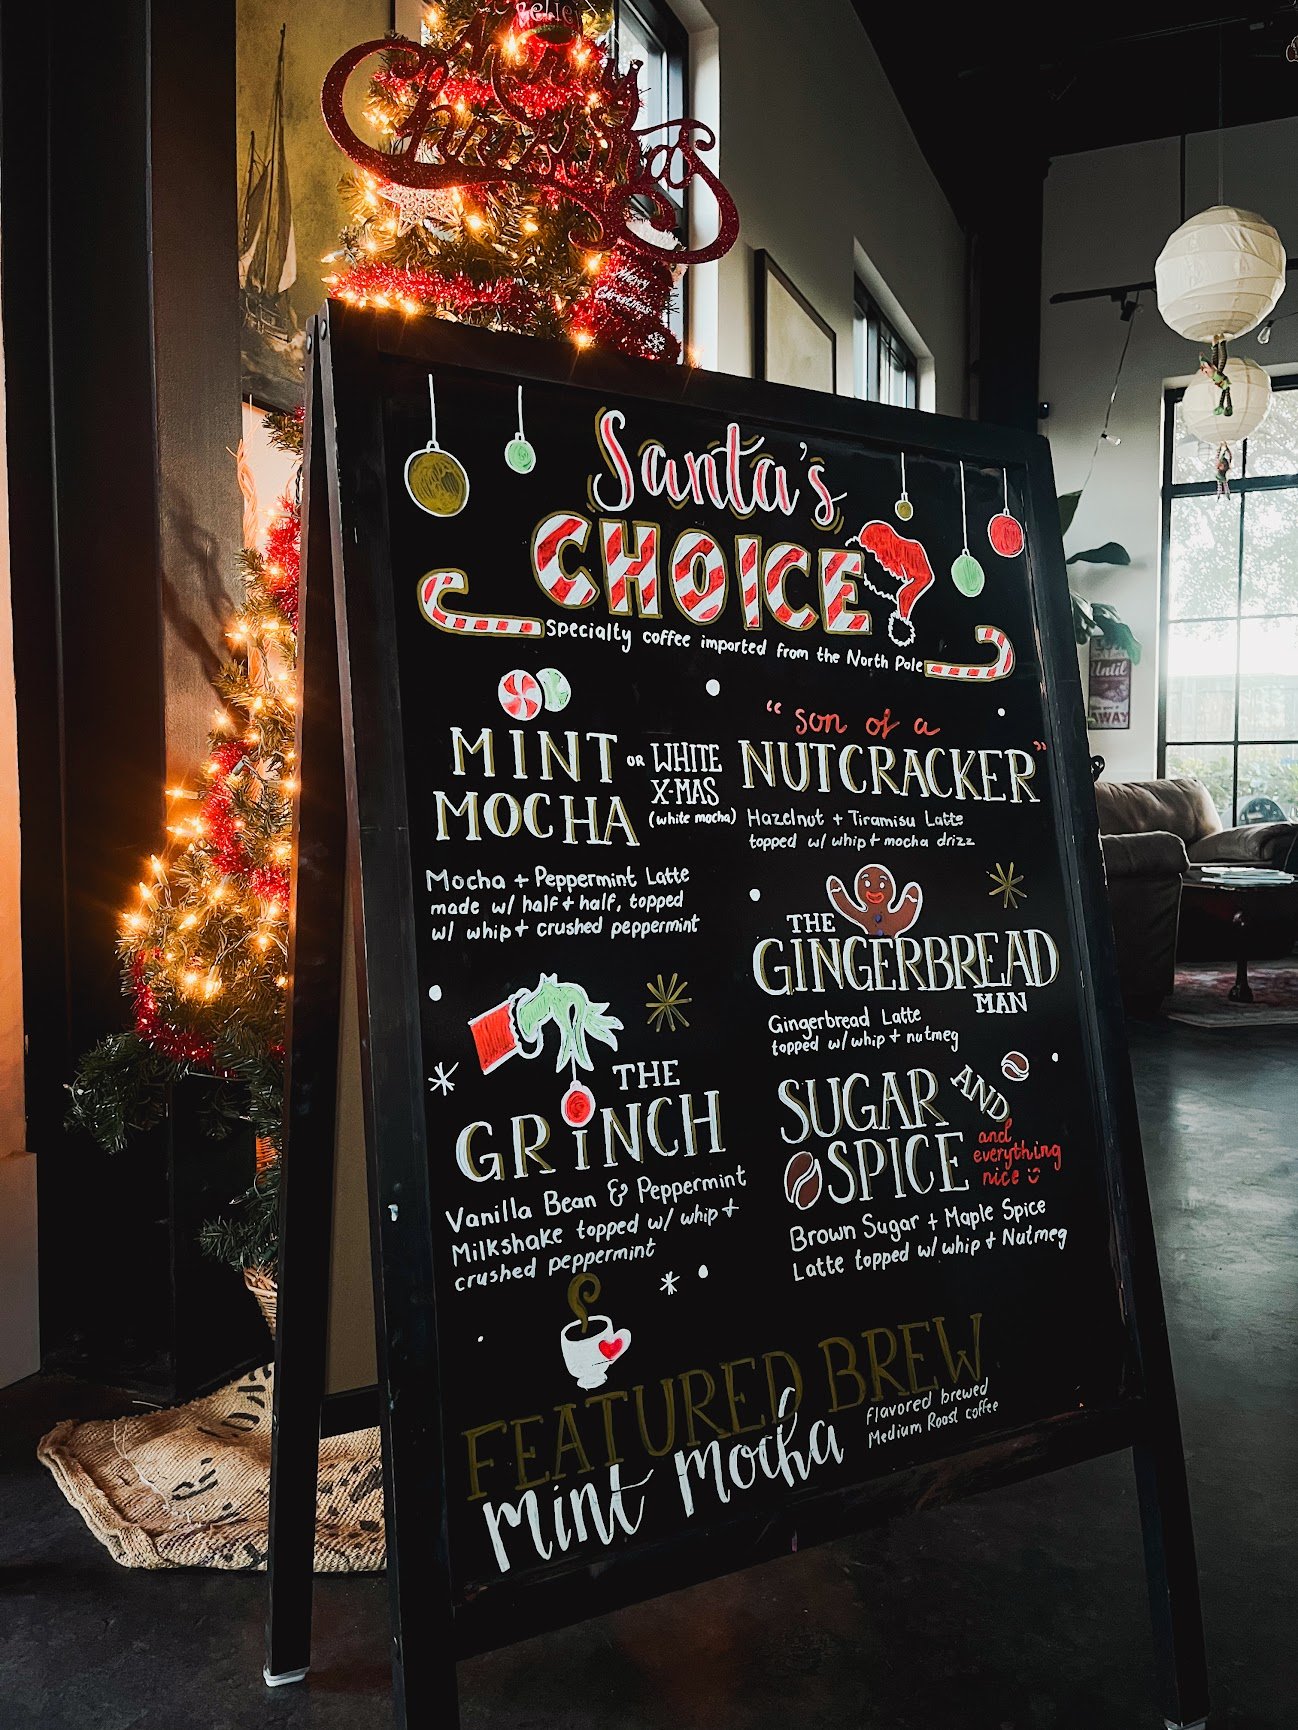 Merry
Christmas
Merry
Christmas
Santa's
CHOICE
Specialty coffee imported from the North Pole
MINT
MOCHA
OR WHITE
X-MAS
(white mocha)
Mocha + Peppermint Latte
made w/ half + half, topped
w/ whip + crushed peppermint
THE
GRiNCH
Vanilla Bean & Peppermint
Milkshake topped w/ whip +
crushed peppermint
"son of a
NUTCRACKER"
Hazelnut + Tiramisu Latte
topped w/ whip + mocha drizz
THE
GINGERBREAD
MAN
Gingerbread Latte
topped w/ whip + nutmeg
SUGAR AND
SPICE
and
everything
nice
Brown Sugar + Maple Spice
Latte topped w/ whip + Nutmeg
FEATURED BREW
Mint Mocha
Flavored brewed
Medium Roast coffee
Until
AWAY